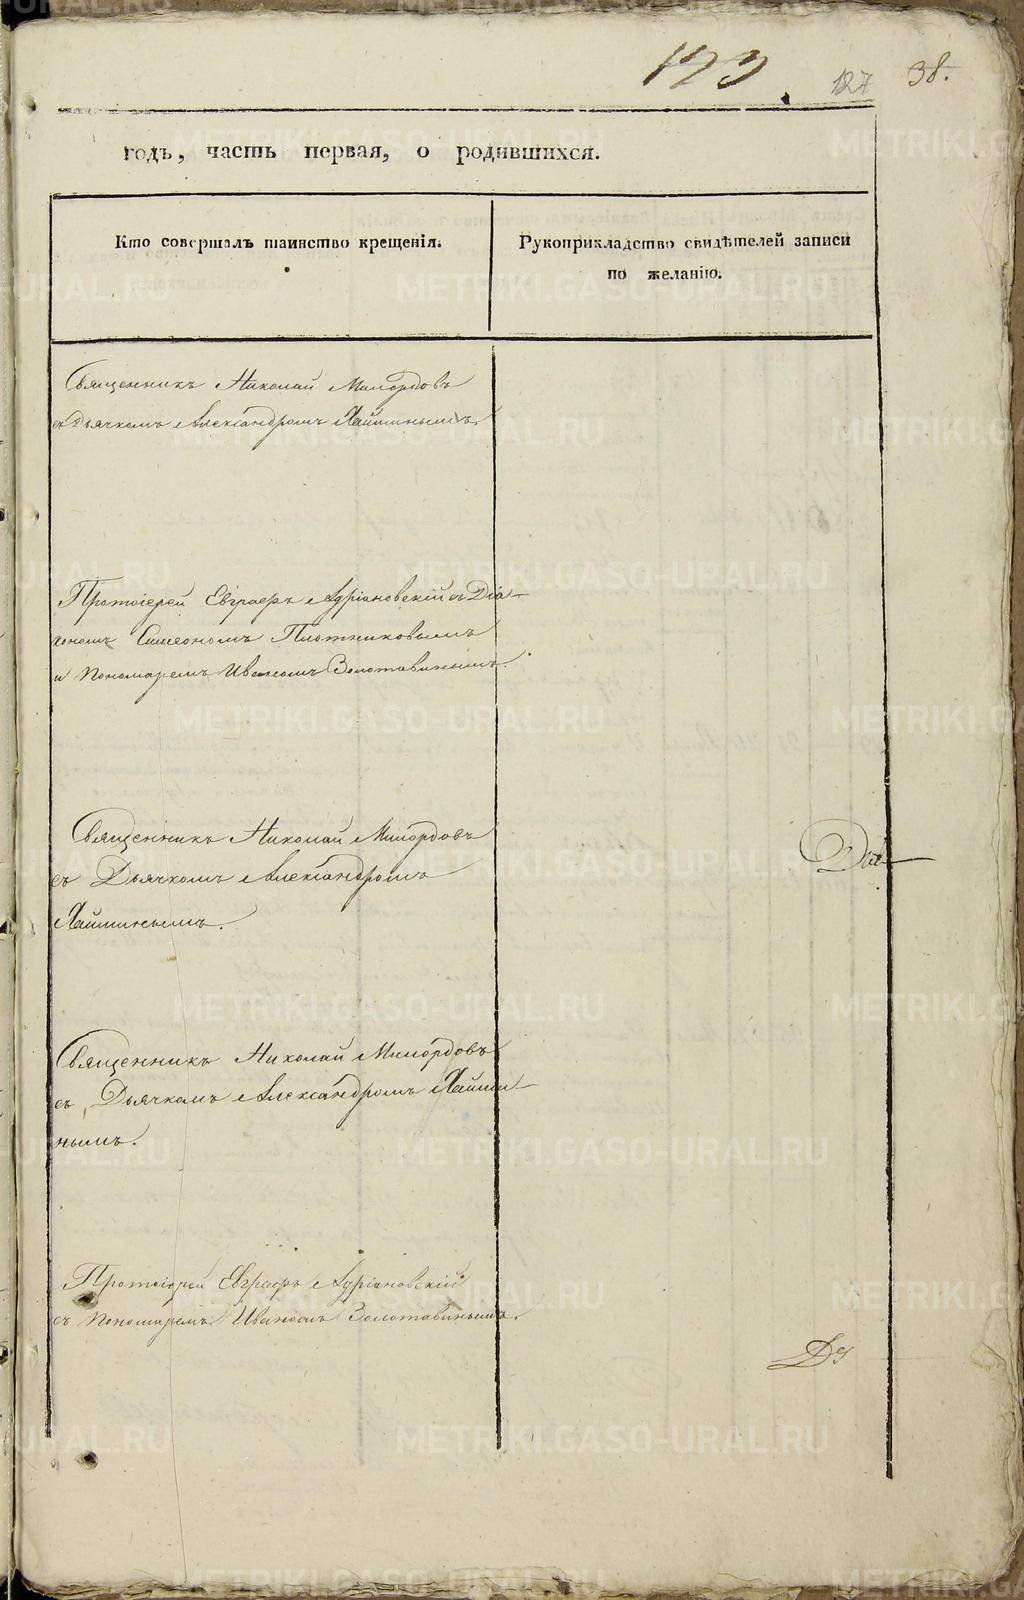 123.
127
38.
годъ, часть первая, о родившихся.
Кто совершалъ таинство крещенія.
Рукоприкладство свидѣтелей записи
по желанію.
Священникъ Николай Милордовъ
съ Дьячкомъ Александромъ Хайминымъ.
Протоіерей Евграфъ Адріановскій съ Діа-
кономъ Симеономъ Плотниковымъ
и Пономаремъ Иваномъ Золотавинымъ.
Священникъ Николай Милордовъ
съ Дьячкомъ Александромъ
Хайминымъ.
Священникъ Николай Милордовъ
съ Дьячкомъ Александромъ Хайми-
нымъ.
Протоіерей Евграфъ Адріановскій
съ Пономаремъ Иваномъ Золотавинымъ.
METRIKI.GASO-URAL.RU